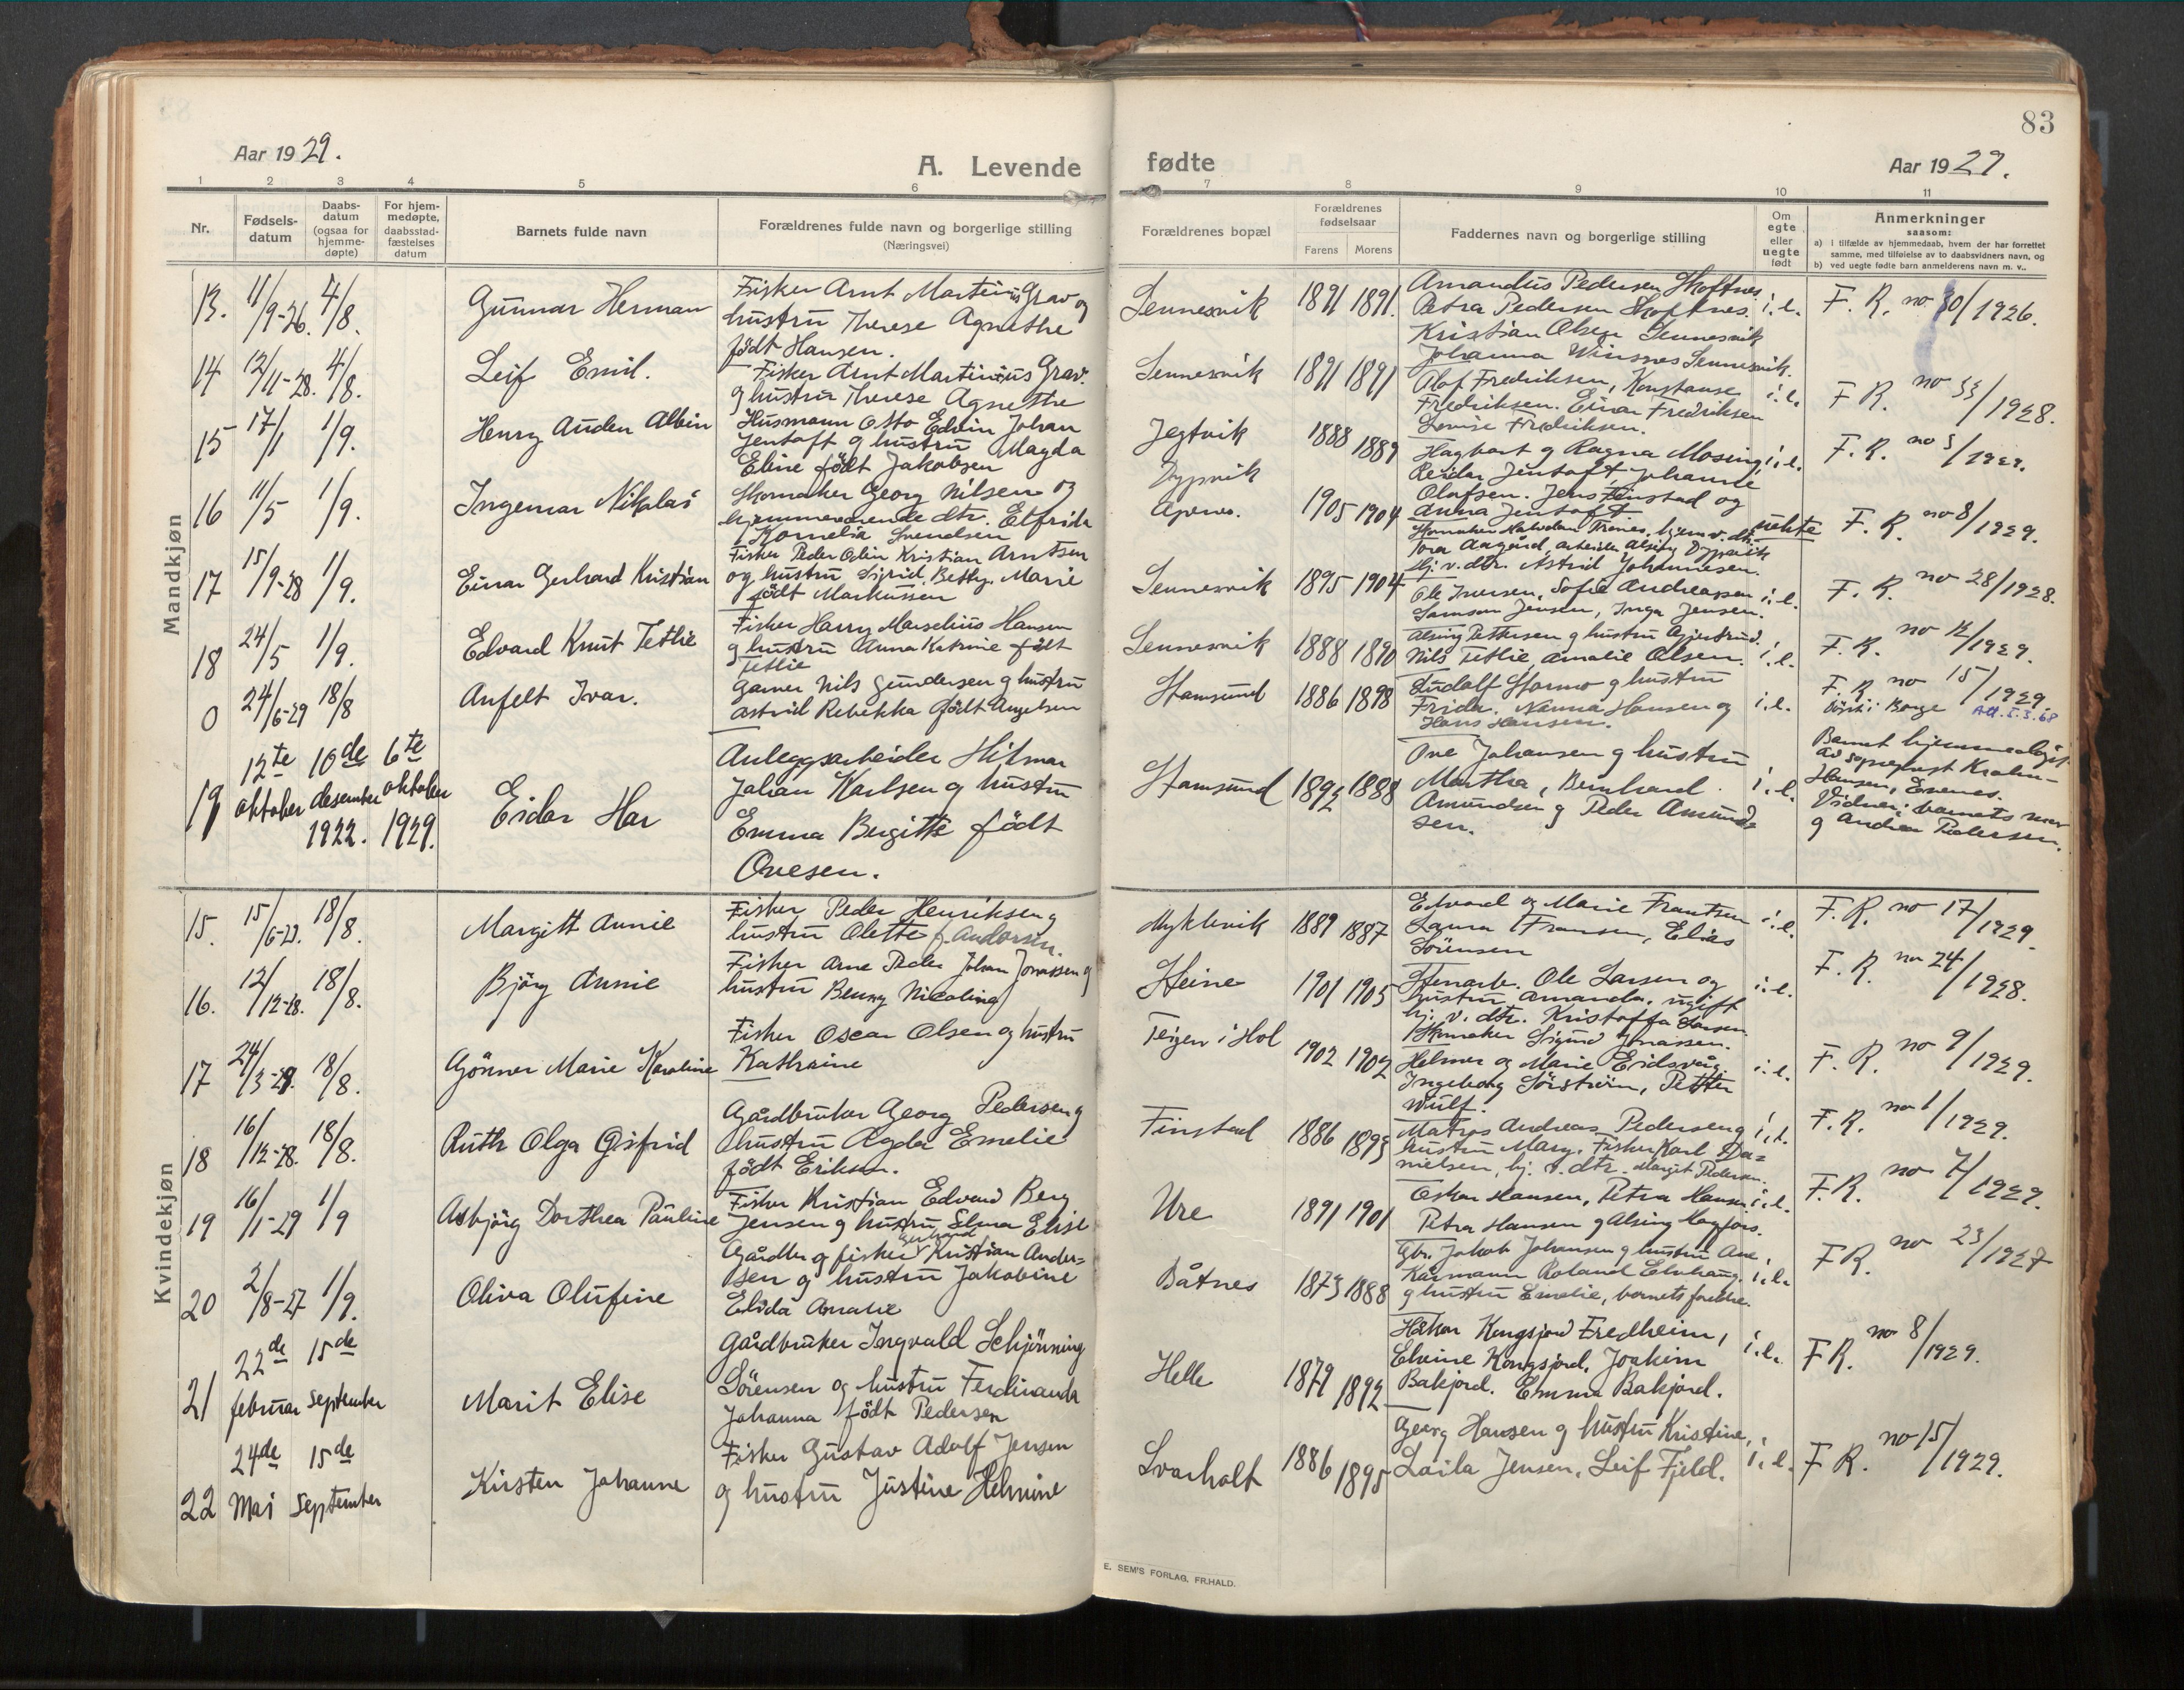 83
Aar 1929.
A. Levende
fødte
Aar 1929.
1 2 3 4 5 6
7 8 9 10 11
Nr.
Fødsels-
datum
Daabs-
datum
(ogsaa for
hjemme-
døpte)
For hjem-
medøpte,
daabsstad-
fæstelses
datum
Barnets fulde navn
Forældrenes fulde navn og borgerlige stilling
(Næringsvei)
Forældrenes bopæl
Forældrenes
fødselsaar
Farens Morens
Faddernes navn og borgerlige stilling
Om
egte
eller
uegte
født
Anmerkninger
saasom:
a) i tilfælde av hjemmedaab, hvem der har forrettet
samme, med tilføielse av to daabsvidners navn, og
b) ved uegte fødte barn anmelderens navn m. v..
Mandkjøn
13. 11/9-26. 4/8. Gunnar Herman
Fisker Arnt Martinius Grav og
hustru Therese Agnethe
født Hansen.
Sennesvik 1891 1891.
Amandus Pedersen Skoftnes.
Petra Pedersen Skoftnes.
Kristian Olsen Sennesvik
Johanna Winsnes Sennesvik.
i.e. F. R. no 30/1926.
14 12/11-28. 4/8. Leif Emil.
Fisker Arnt Martinius Grav.
og hustru Therese Agnethe
Sennesvik 1891 1891
Olaf Fredriksen, Konstanse
Fredriksen. Einar Fredriksen
Lovise Fredriksen.
i.e. F R. no 33/1928.
15 17/1 1/9. Henry Auden Albin
Husmann Otto Edvin Johan
Jentoft og hustru Magda
Eline født Jakobsen
Jegtvik 1888 1889
Hagbart og Ragna Mosing,
Reidar Jentoft, Johanne
Olafsen. Jens Finstad og
Anna Jentoft.
i.e. F. R. no 3/1929.
16 11/5 1/9. Ingemar Nikolai
Skomaker Georg Nilsen og
hjemmeværende dtr. Elfrida
Kornelia Svendsen
Dypvik
1905 1904
Tora Aagård, arbeider Alsing Dypvik
hj. v. dtr. Astrid Johannesen.
uekte F. R. no 8/1929.
17 15/9-28 1/9. Einar Gerhard Kristian
Fisker Peder Odin Kristian Arntsen
og hustru Sigrid Betzy Marie
født Markussen
Sennesvik 1895 1904
Ole Iversen, Sofie Andreassen
Samson Jensen, Inga Jensen.
i.e. F. R. no 28/1928.
18 24/5 1/9. Edvard Knut Tetlie
Fisker Harry Marselius Hansen
og hustru Anna Katrine født
Tetlie
Sennesvik 1888 1890
Alsing Pettersen og hustru Gjertrud.
Nils Tetlie, Amalie Olsen.
i.e. F. R. no 12/1929.
0 24/6-29 18/8 Anfelt Ivar.
Garver Nils Gundersen og hustru
Astrid Rebekka født Angelsen
Stamsund 1886 1898
Rudolf Stormo og hustru
Frida. Nanna Hansen og
Hans Hansen.
i.e. F. R. no 15/1929.
Att. 5.3.68
19 12te oktober 10de desember 1922. 6te oktober 1929.
Eidar Har
Anleggsarbeider Hilmar
Johan Karlsen og hustru
Emma Bergitte født
Ovesen.
Stamsund 1892 1888
Ove Johansen og hustru
Martha, Bernhard
Amundsen og Peder Amund-
sen.
i.e.
Barnet hjemmedøpt
av sogneprest Krohn-
Hansen, Evenes.
Vidner: barnets mor
og Andrea Pedersen.
Kvindekjøn
15. 15/6-29. 18/8. Margitt Annie
Fisker Peder Henriksen og
hustru Olette f. Andersen.
Myklevik 1889 1887
Edvard og Marie Frantsen
Laura Fransen, Elias
Sørensen
i.e. F. R. no 17/1929.
16. 12/12-28. 18/8. Bjørg Annie
Fisker Arne Peder Johan Jonassen og
hustru Benny Nicoline
Steine 1901 1905
Stenarb. Ole Larsen og
hustru Amanda, ugift
hj. v. dtr. Kristoffa Larsen.
Skomaker Sigurd Jonassen.
i.e. F. R. no 24/1928.
17 24/3-29. 18/8. Gönner Marie Karoline
Fisker Oscar Olsen og hustru
Kathraine
Teigen i Hol 1902 1902
Helmer og Marie Eidsvåg.
Ingeborg Sörström, Petter
Wulf.
i.e. F. R. no 9/1929.
18 16/12-28. 18/8. Ruth Olga Gisfrid
Gårdbruker Georg Pedersen og
hustru Agda Emelie
født Eriksen.
Finstad 1886 1893
Matros Andreas Pedersen og
hustru Mary. Fisker Karl Da-
nielsen, hj. v. dtr. Margit Pedersen.
i.e. F. R. no 1/1929.
19 16/1-29 1/9 Asbjörg Dorthea Pauline
Fisker Kristian Edvard Berg
Jensen og hustru Elma Elise
Ure 1891 1901
Oskar Hansen, Petra Hansen
Petra Hansen og Alsing Hagfors.
i.e. F. R. no 7/1929.
20 2/8-27 1/9. Oliva Olufine
Gerhard
Gårdbr. og fisker Kristian Ander-
sen og hustru Jakobine
Elida Amalie
Båtnes 1873 1888
Gbr. Jakob Johansen og hustru Ane,
og hustru Emelie, barnets foreldre.
i.e. F R. no 23/1927
21 22de februar 15de september Marit Elise
Gårdbruker Ingvald Schjönning
Sörensen og hustru Ferdinanda
Johanna født Pedersen
Helle 1879 1892
Håkon Kongsjord Fredheim,
Elvine Kongsjord, Joakim
Bakjord. Emma Bakjord.
i.e. F R. no 8/1929.
22 24de Mai 15de september Kirsten Johanne
Fisker Gustav Adolf Jensen
og hustru Justine Helmine
Svarholt 1886 1895
Georg Hansen og hustru Kristine,
Laila Jensen, Leif Fjeld.
i.e. F R. no 15/1929.
E. SEM'S FORLAG, FR.HALD.